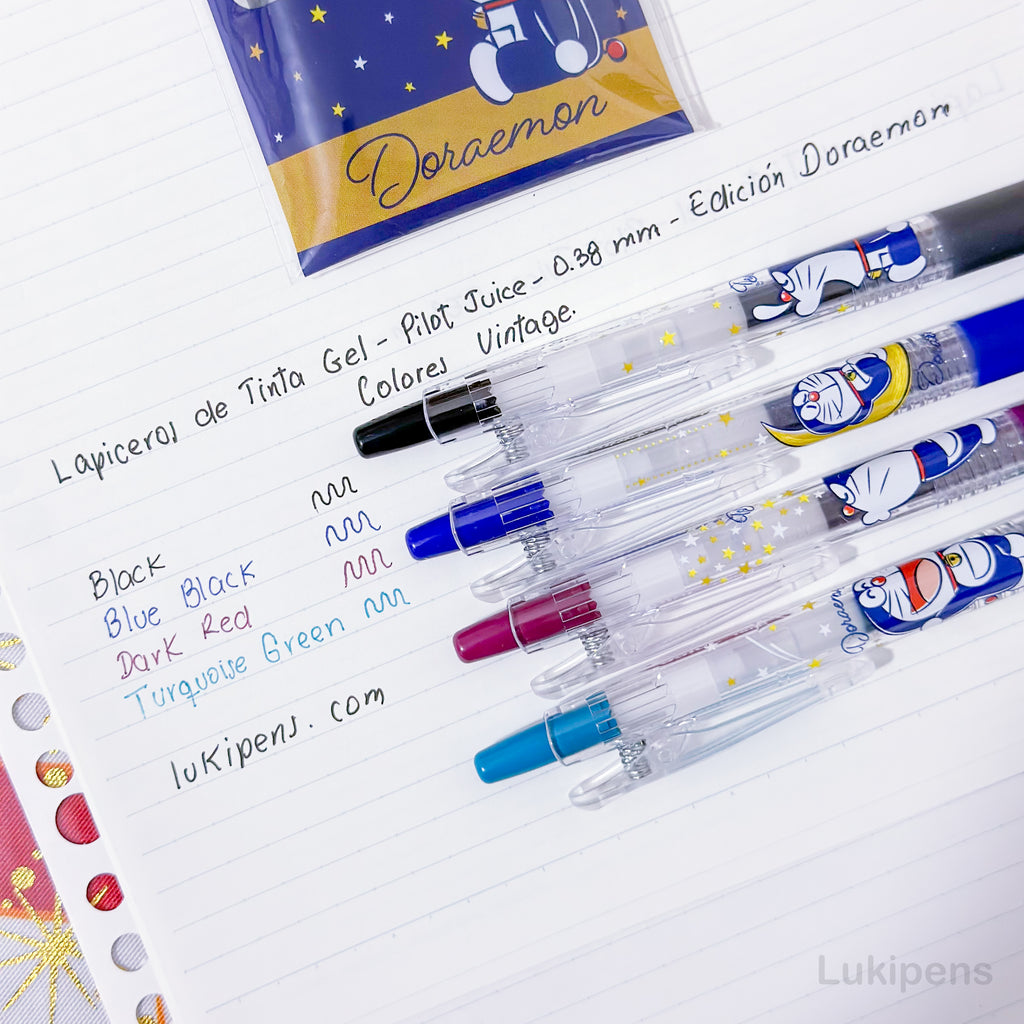 Doraemon
Lapiceros de Tinta Gel - Pilot Juice - 0.38 mm - Edición Doraemon
Colores Vintage.
Black
Blue Black
Dark Red
Turquoise Green
lukipens.com
Doraemon
Lukipens